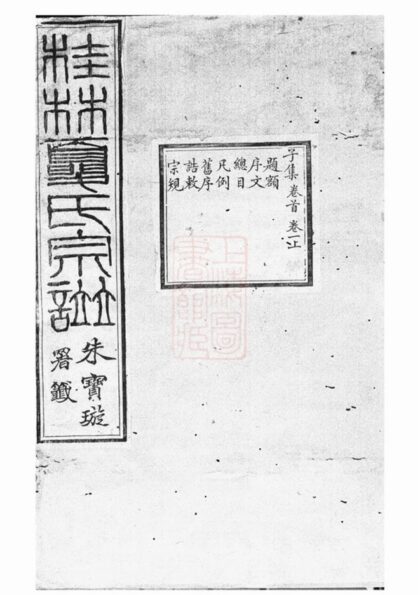 子集 卷首 卷一上
題額
序文
總目
凡例
舊序
誥敕
宗規
桂林夏氏宗譜
朱寶璇
署籤
上海圖
書館藏